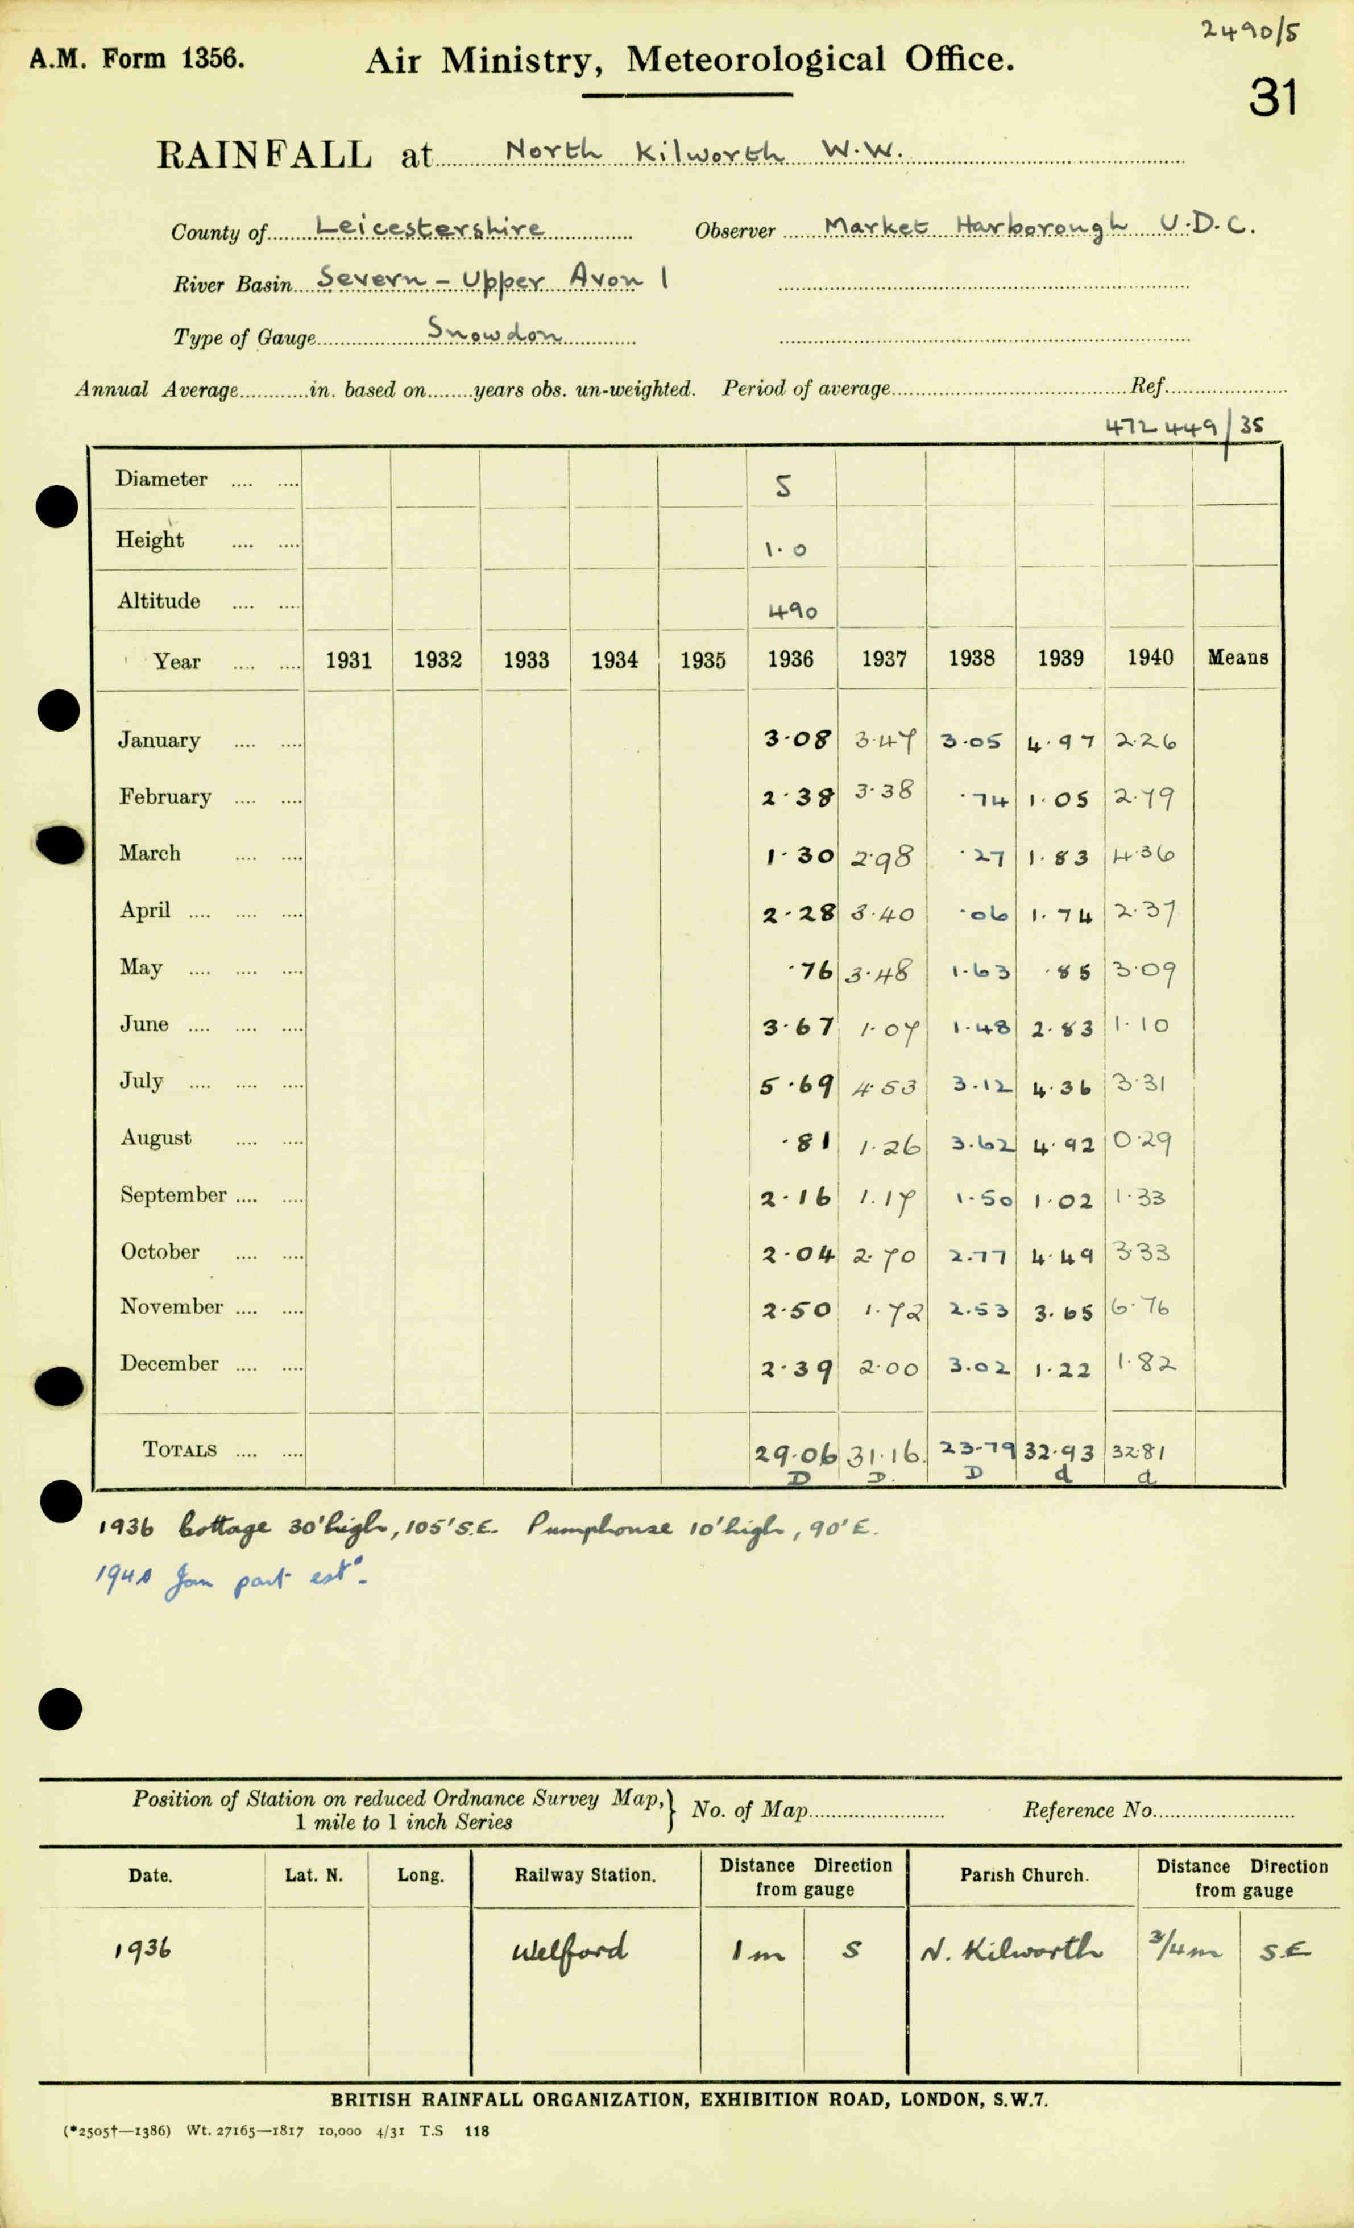 2490/5
A.M. Form 1356. Air Ministry, Meteorological Office.
31
RAINFALL at North Kilworth W.W.
County of Leicestershire Observer Market Harborough U.D.C.
River Basin Severn - Upper Avon 1
Type of Gauge Snowdon
Annual Average in. based on years obs. un-weighted. Period of average Ref.
472449/35
Diameter 5
Height 1.0
Altitude 490
Year 1931 1932 1933 1934 1935 1936 1937 1938 1939 1940 Means
January 3.08 3.47 3.05 4.97 2.26
February 2.38 3.38 .74 1.05 2.79
March 1.30 2.98 .27 1.83 4.36
April 2.28 3.40 .06 1.74 2.37
May .76 3.48 1.63 .85 3.09
June 3.67 1.07 1.48 2.83 1.10
July 5.69 4.53 3.12 4.36 3.31
August .81 1.26 3.62 4.92 0.29
September 2.16 1.17 1.50 1.02 1.33
October 2.04 2.70 2.77 4.49 3.33
November 2.50 1.72 2.53 3.65 6.76
December 2.39 2.00 3.02 1.22 1.82
TOTALS 29.06 31.16. 23.79 32.93 32.81
D D. D d d
1936 Cottage 30' high, 105' S.E. Pumphouse 10' high, 90' E.
1940 Jan part estd.
Position of Station on reduced Ordnance Survey Map, } No. of Map Reference No.
1 mile to 1 inch Series
Date. Lat. N. Long. Railway Station. Distance Direction from gauge Parish Church. Distance Direction from gauge
1936 Welford 1 m S N. Kilworth 3/4 m S.E
BRITISH RAINFALL ORGANIZATION, EXHIBITION ROAD, LONDON, S.W.7.
(*2505†—1386) Wt. 27165—1817 10,000 4/31 T.S 118